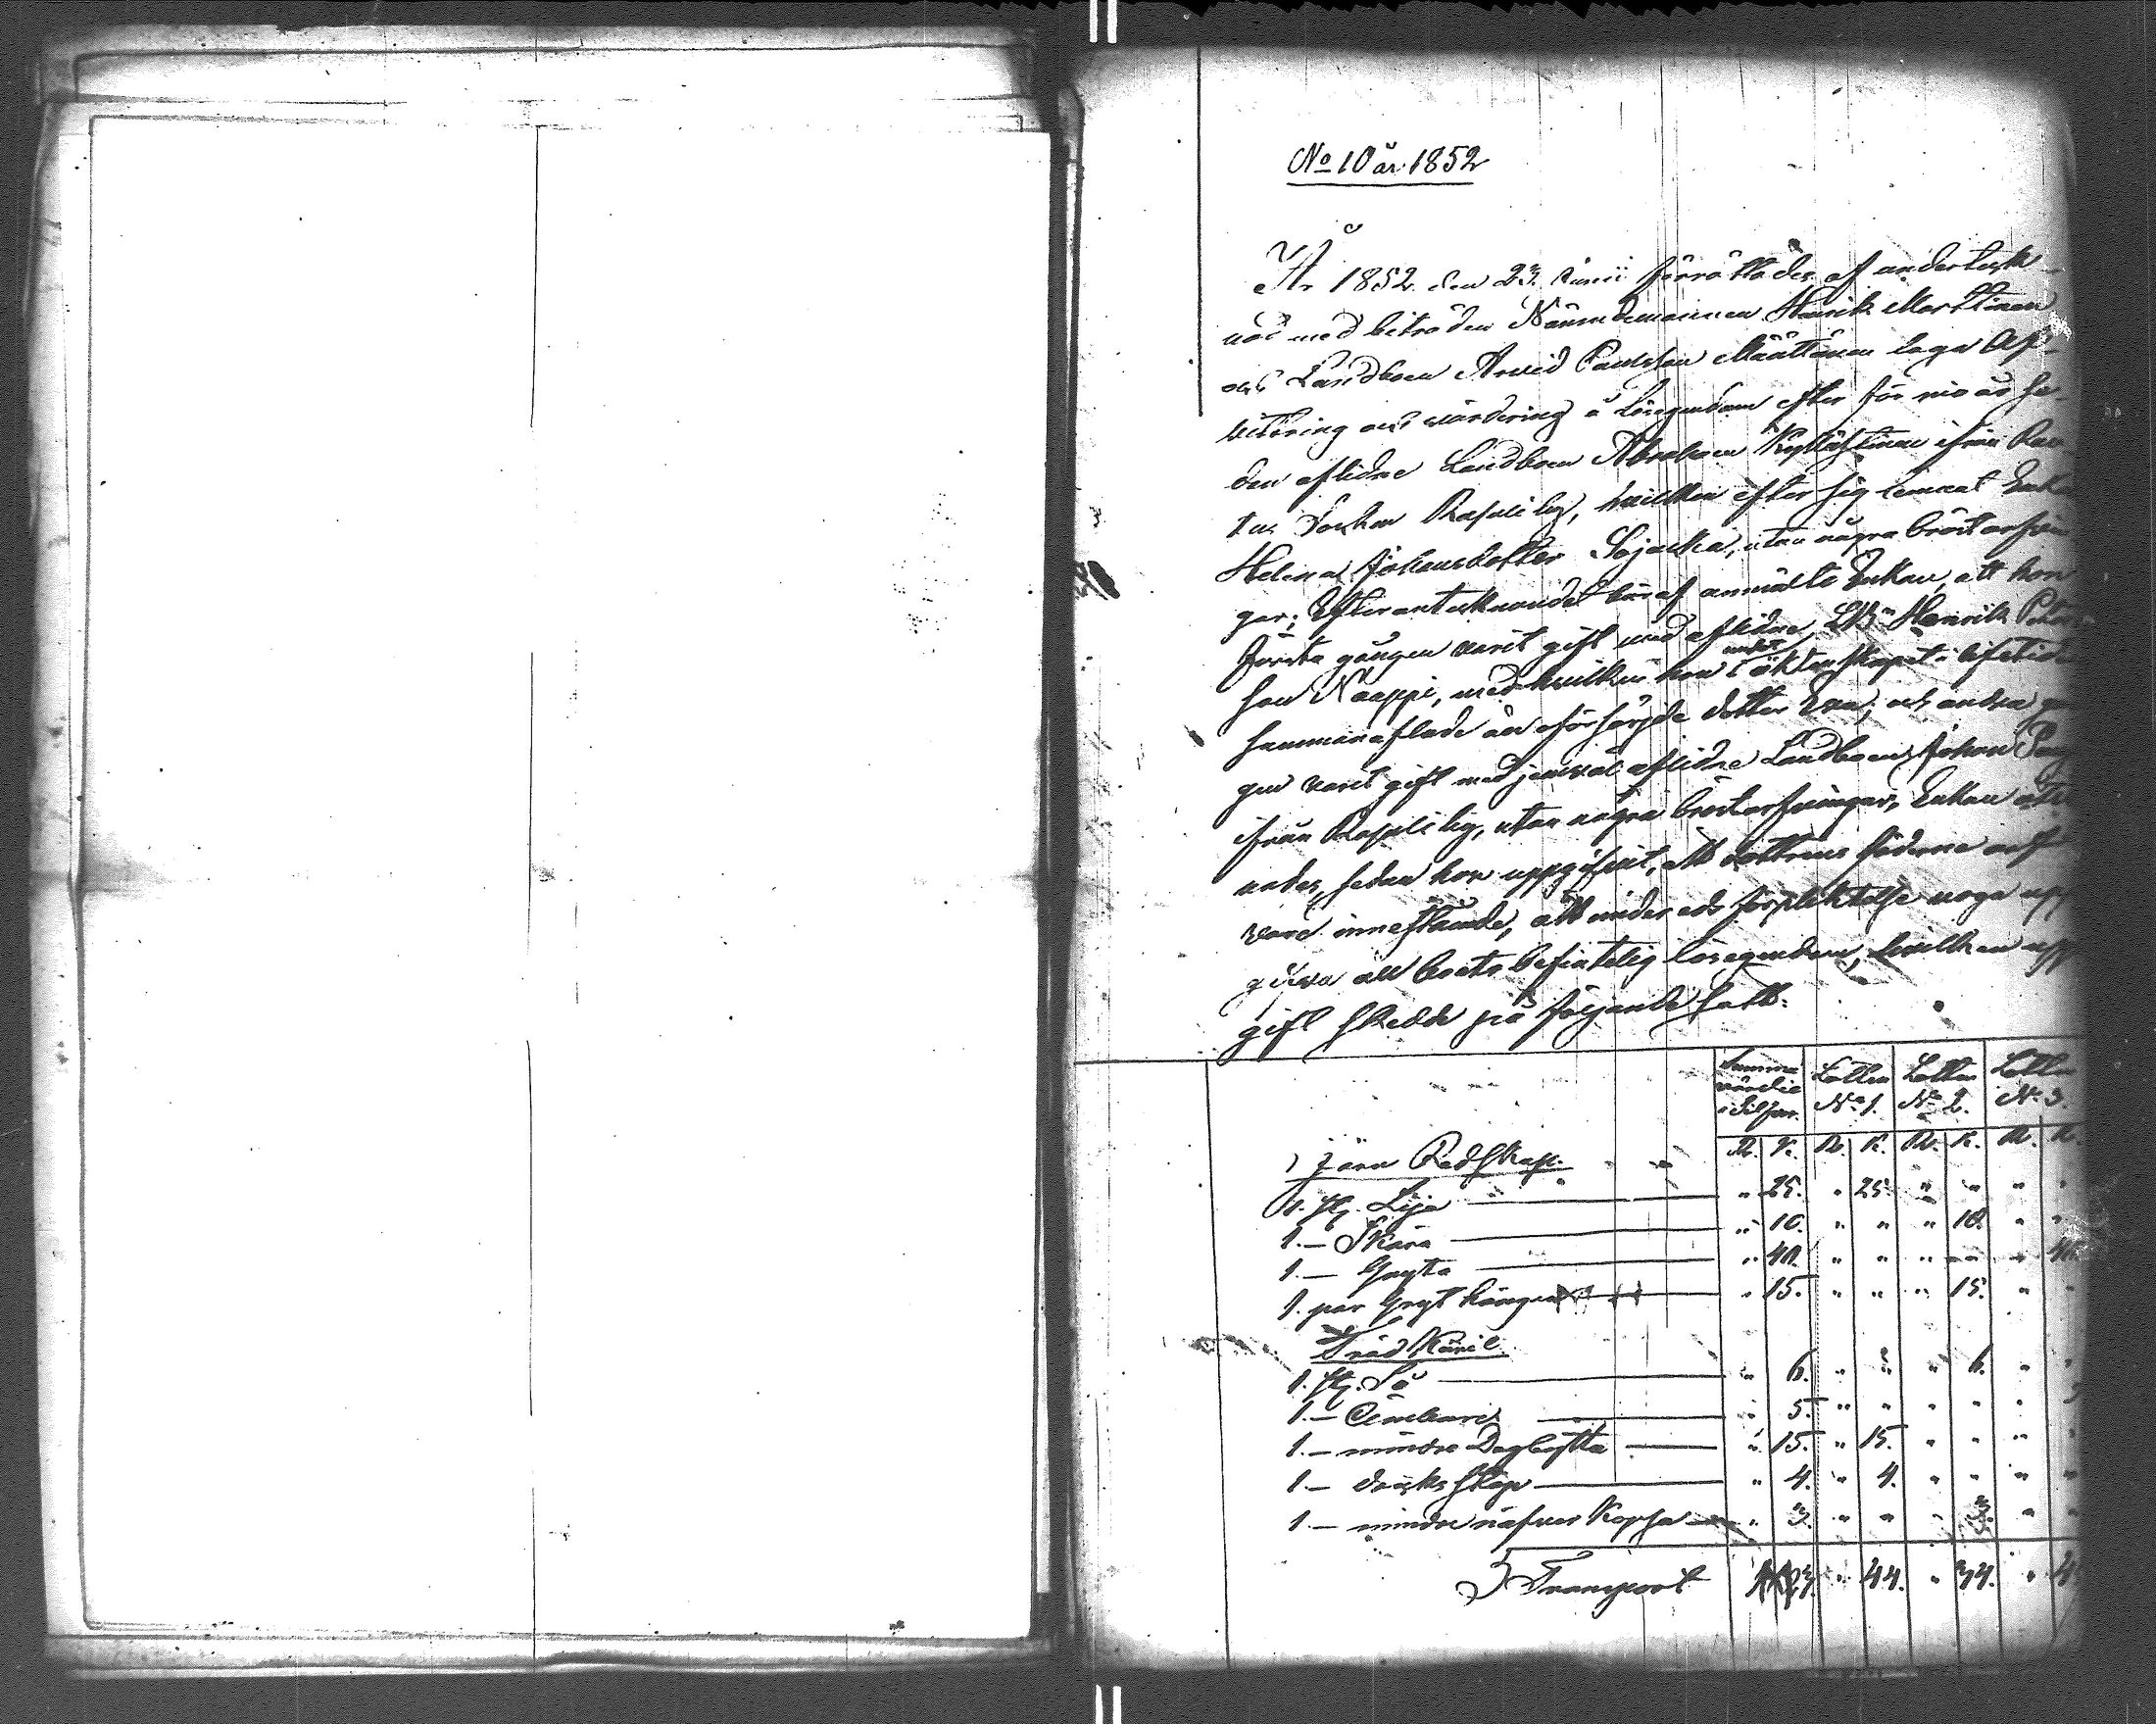 No 10 år 1852
År 1852 den 23 Junii förrättades af underteck-
nad med biträden Nämndemannen Henrik Marttinen
och Landboen Arvid Paulsson Määttänen laga Af-
vittring och värdering å Lösegendom efter för nio år se-
dan aflidne Landboen Abraham ifrån Rau-
tus Sochen by, hvilken efter sig lemnat Enkan
Helena Johansdotter Sojacka, utan några bröstarfvin
gar; Efter antecknandet häraf anmälte Enkan, att hon
första gången varit gift med aflidne Henrik Peters-
son Naappi, med hvilken hon under äktenskapet i lifstiden
sammanaflade en oförsörjde dotter Eva, och andra gån
gen varit gift med jemväl aflidne Landboen Johan
ifrån by, utan några bröstarfvingar, Enkan
nades, sedan hon uppgifvit, att dottrens fäderne arf
vore innestående, att under eds förpliktelse noga upp
gifva all boets befintelig lösegendom, hvilken upp
gift skedde på följande sätt:
Summa värdie i Silfver. Lotten No 1. Lotten No 2. Lotten No 3.
R. K. R. K. R. K. R. K.
Järn Redskap.
1. st. Lija " 25. " 25. " " " "
1. — Skära " 10. " " " 10. " "
1. — Gryta " 40. " " " " " 40.
1. par Gryt hängen " 15. " " " 15. " "
Träd Käril
1. st. Så " 6. " " " 6. " "
1. — Embare " 5. " " " " " 5
1. — mindre Degbytta " 15. " 15. " " " "
1. — dricks stop " 4. " 4. " " " "
1. — mindre näfver Kopsa " 3. " " " 3. " "
Transport " 44. " 34. " 4